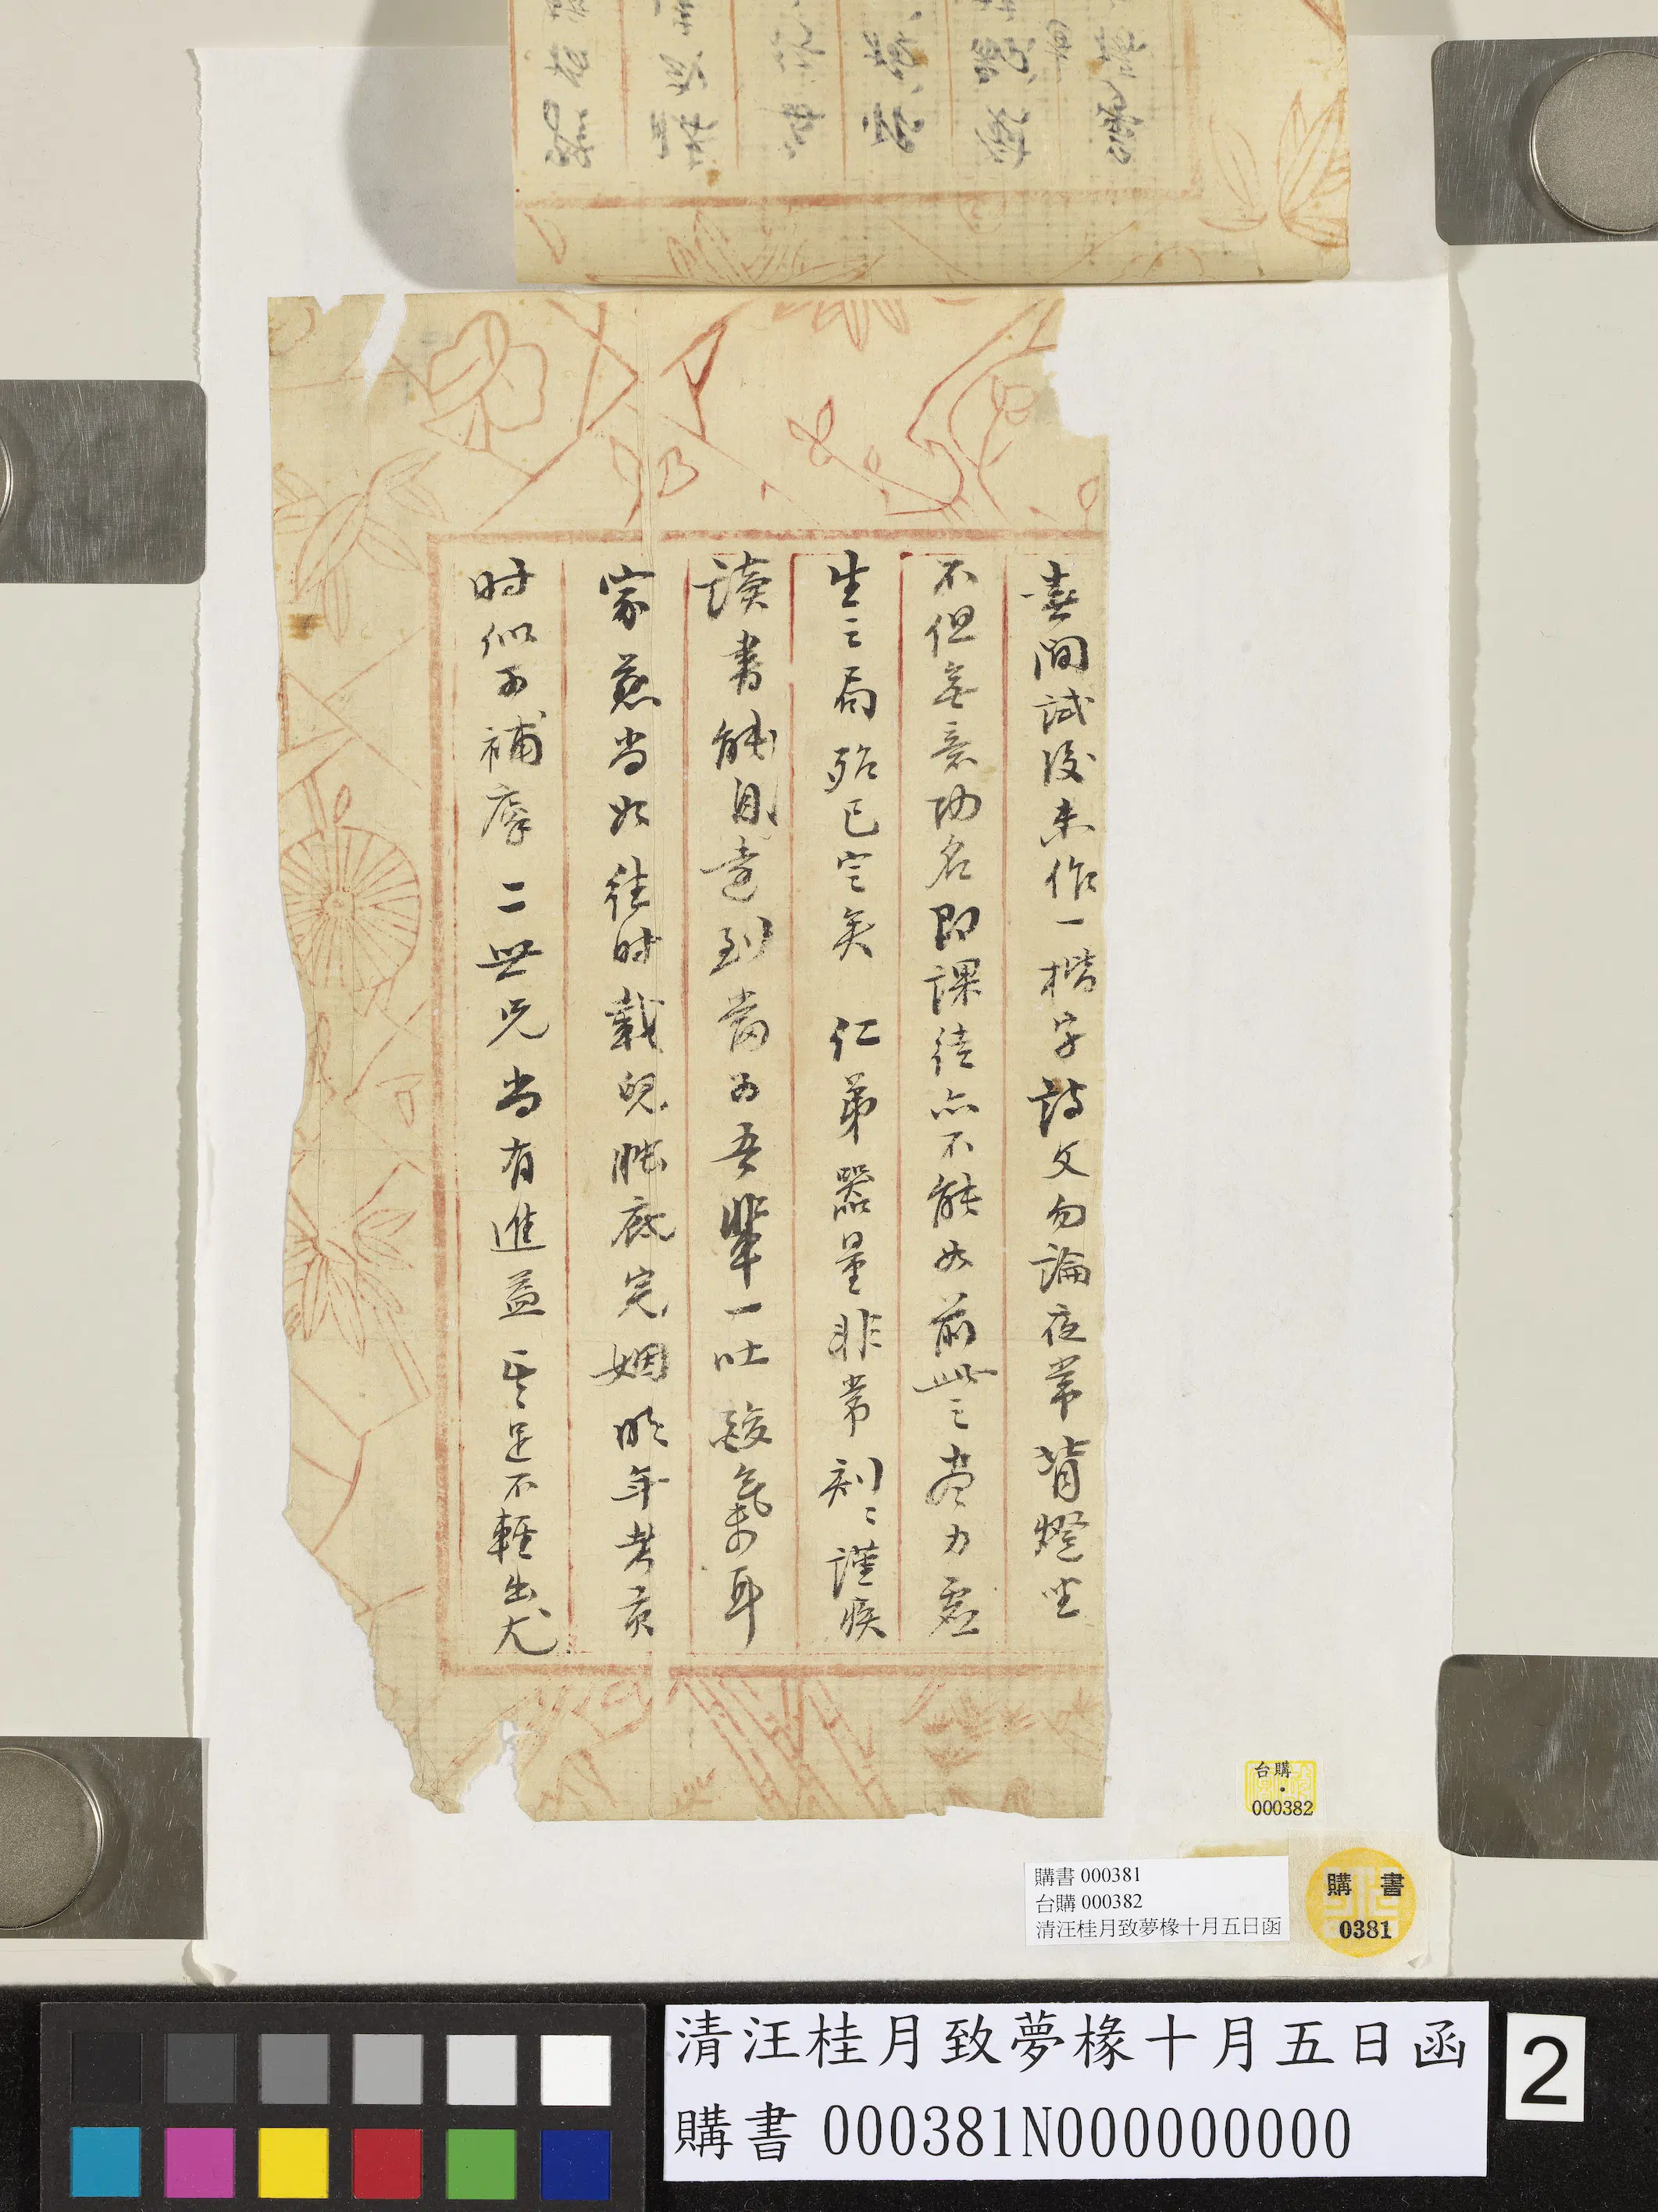 喜閒試後未作一楷字詩文勿論夜常背燈坐
不但無意功名即課徒亦不能如前此之盡力處
生之局殆已定矣 仁弟器量非常刻刻謹疾
讀書能自達到當為吾輩一吐酸氣耳
家慈尚如往時載兒臘底完姻明年考貢
時似可補廩 二世兄尚有進益 足不輕出尤
台購
000382
購書 000381
台購 000382
清汪桂月致夢椽十月五日函
購書
0381
清汪桂月致夢椽十月五日函
購書 000381N000000000
2